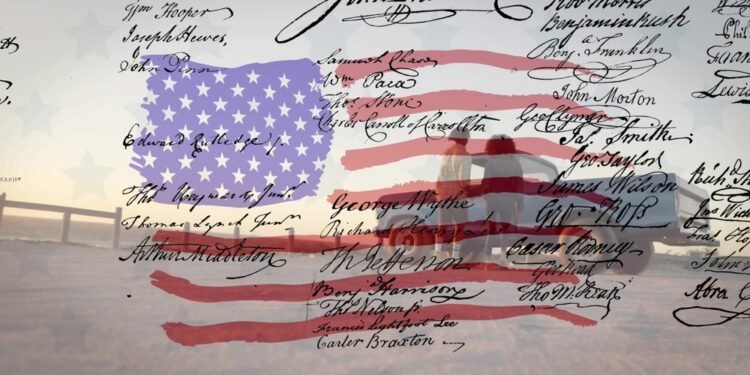 Wm Hooper
Joseph Hewes,
John Penn
Edward Rutledge /.
Thos Heyward Junr.
Thomas Lynch Junr.
Arthur Middleton
Samuel Chase
Wm Paca
Thos Stone
Charles Carroll of Carrollton
George Wythe
Richard Henry Lee
Th Jefferson
Benj Harrison
Thos Nelson jr.
Francis Lightfoot Lee
Carter Braxton
Robt Morris
Benjamin Rush
Benj. Franklin
John Morton
Geo Clymer
Jas. Smith
Geo. Taylor
James Wilson
Geo. Ross
Caesar Rodney
Geo Read
Tho M:Kean
Phil
Lewis
Richd
John
Abra C